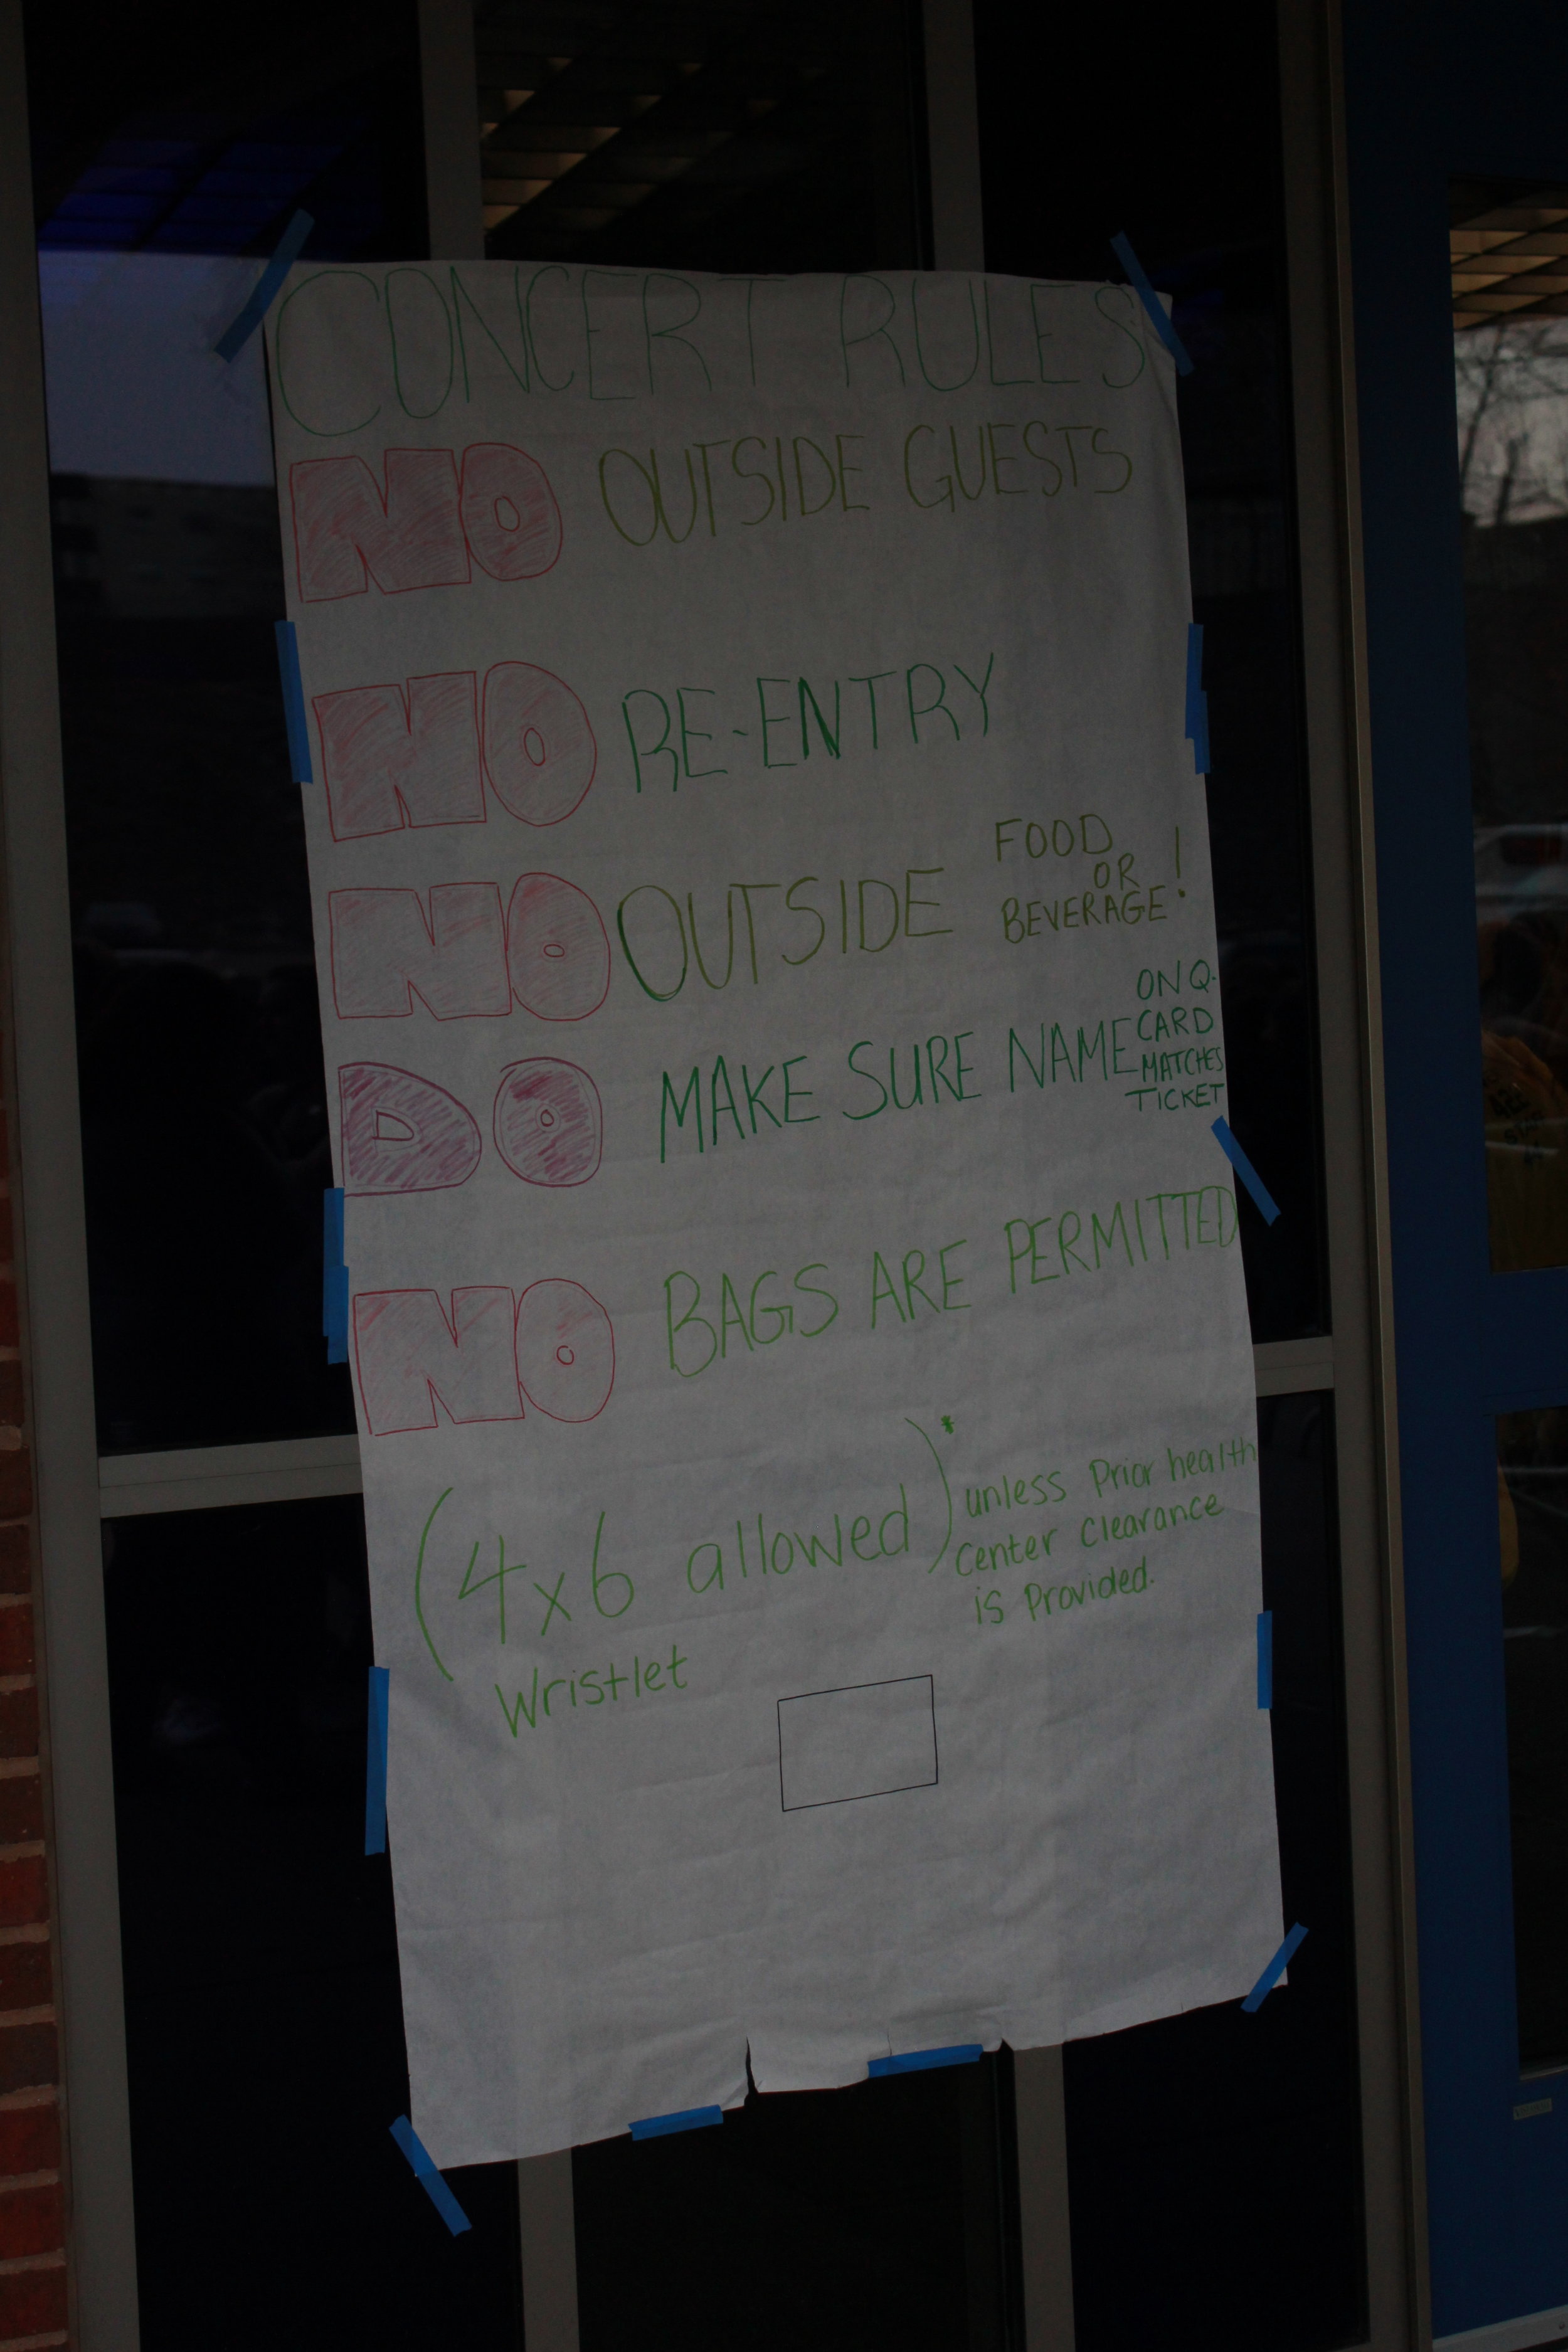 CONCERT RULES
NO OUTSIDE GUESTS
NO RE-ENTRY
NO OUTSIDE FOOD
OR
BEVERAGE!
DO MAKE SURE NAME ON Q-
CARD
MATCHES
TICKET
NO BAGS ARE PERMITTED
(4x6 allowed)*
Wristlet
unless Prior health
Center Clearance
is Provided.